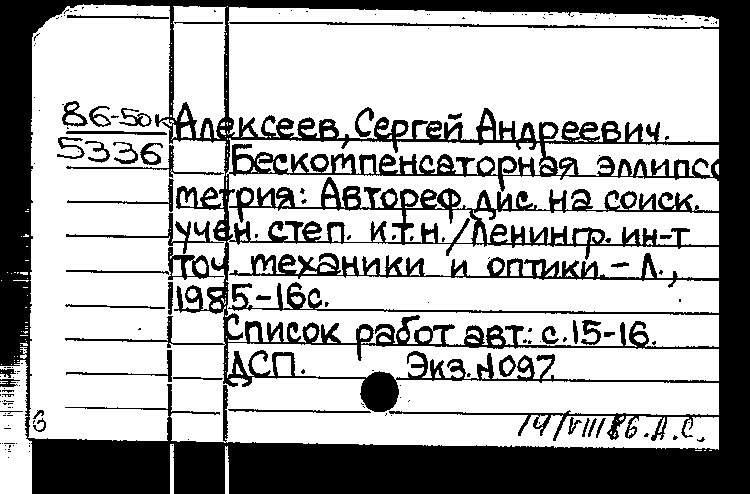 86-50к Алексеев, Сергей Андреевич.
5336 Бескомпенсаторная эллипсо
метрия: Автореф. дис. на соиск.
учен. степ. к.т.н./Ленингр. ин-т
точ. механики и оптики. – Л.,
1985.-16с.
Список работ авт.: с.15-16.
ДСП. Экз.№097.
14/VIII86.А.С.